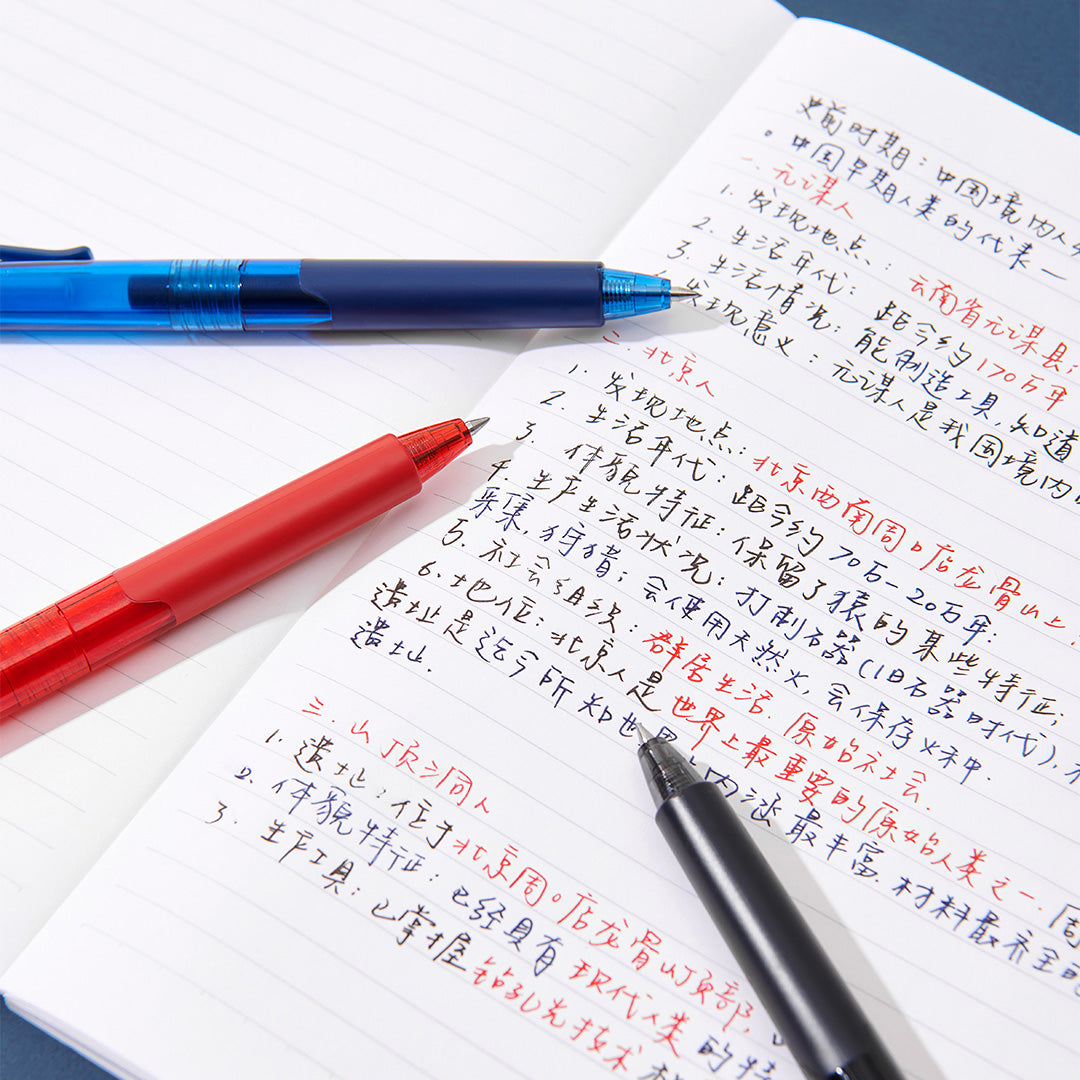 史前时期：中国境内人
。中国早期人类的代表一
一. 元谋人
1. 发现地点：云南省元谋县；
2. 生活年代：距今约170万年
3. 生活情况：能制造工具，知道
发现意义：元谋人是我国境内
二. 北京人
1. 发现地点：北京西南周口店龙骨山上.
2. 生活年代：距今约70万-20万年：
3. 体貌特征：保留了猿的某些特征；
4. 生产生活状况：打制石器(旧石器时代)，
采集，狩猎；会使用天然火，会保存火种.
5. 社会组织：群居生活. 原始社会.
6. 地位：北京人是世界上最重要的原始人类之一. 周
遗址是迄今所知世界 内涵最丰富. 材料最齐全的
遗址.
三. 山顶洞人
1. 遗址：位于北京周口店龙骨山顶部，
2. 体貌特征：已经具有现代人类的特
3. 生产工具：已掌握钻孔 技术